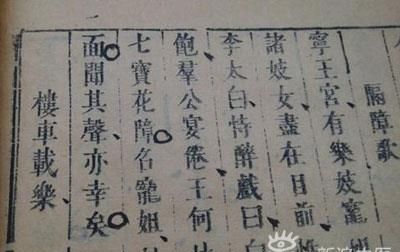 隔障歌
寧王宮有樂妓寵
諸妓女盡在目前
李太白恃醉戲曰白
飽羣公宴倦王何
七寶花障名寵姐
面聞其聲亦幸矣
樓車載樂